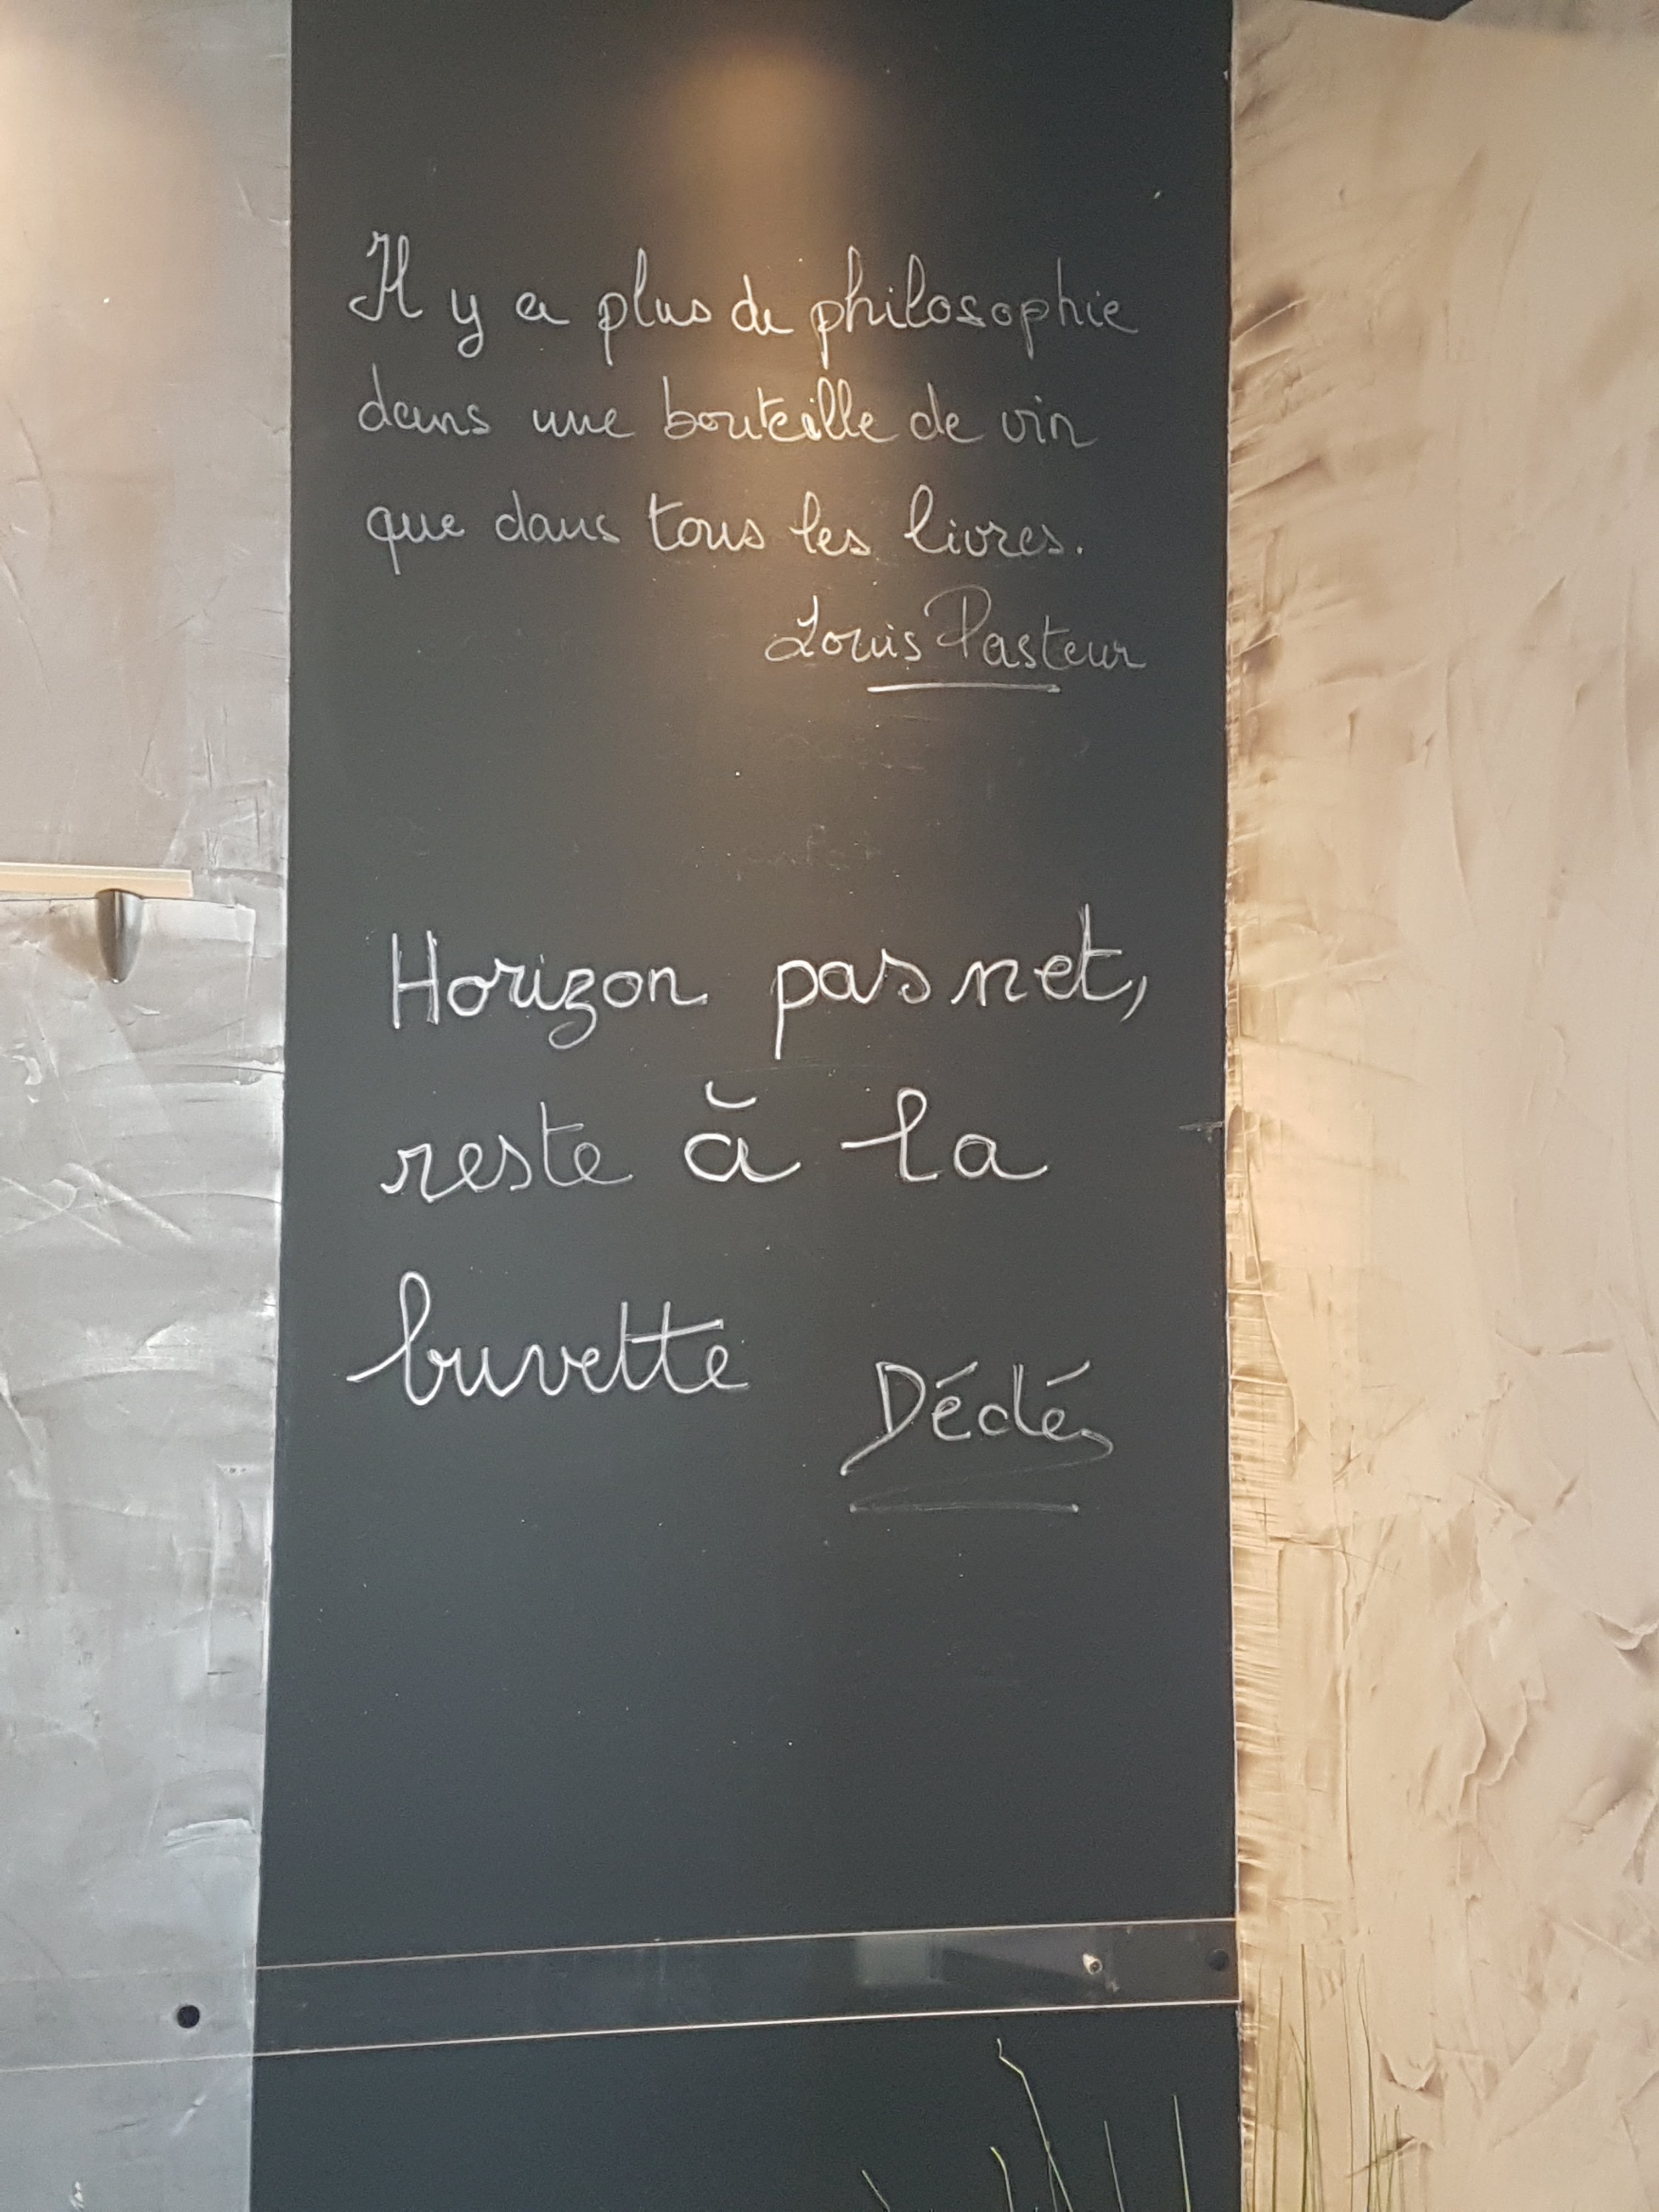 Il y a plus de philosophie
dans une bouteille de vin
que dans tous les livres.
Louis Pasteur
Horizon pas net,
reste à la
buvette
Dédé